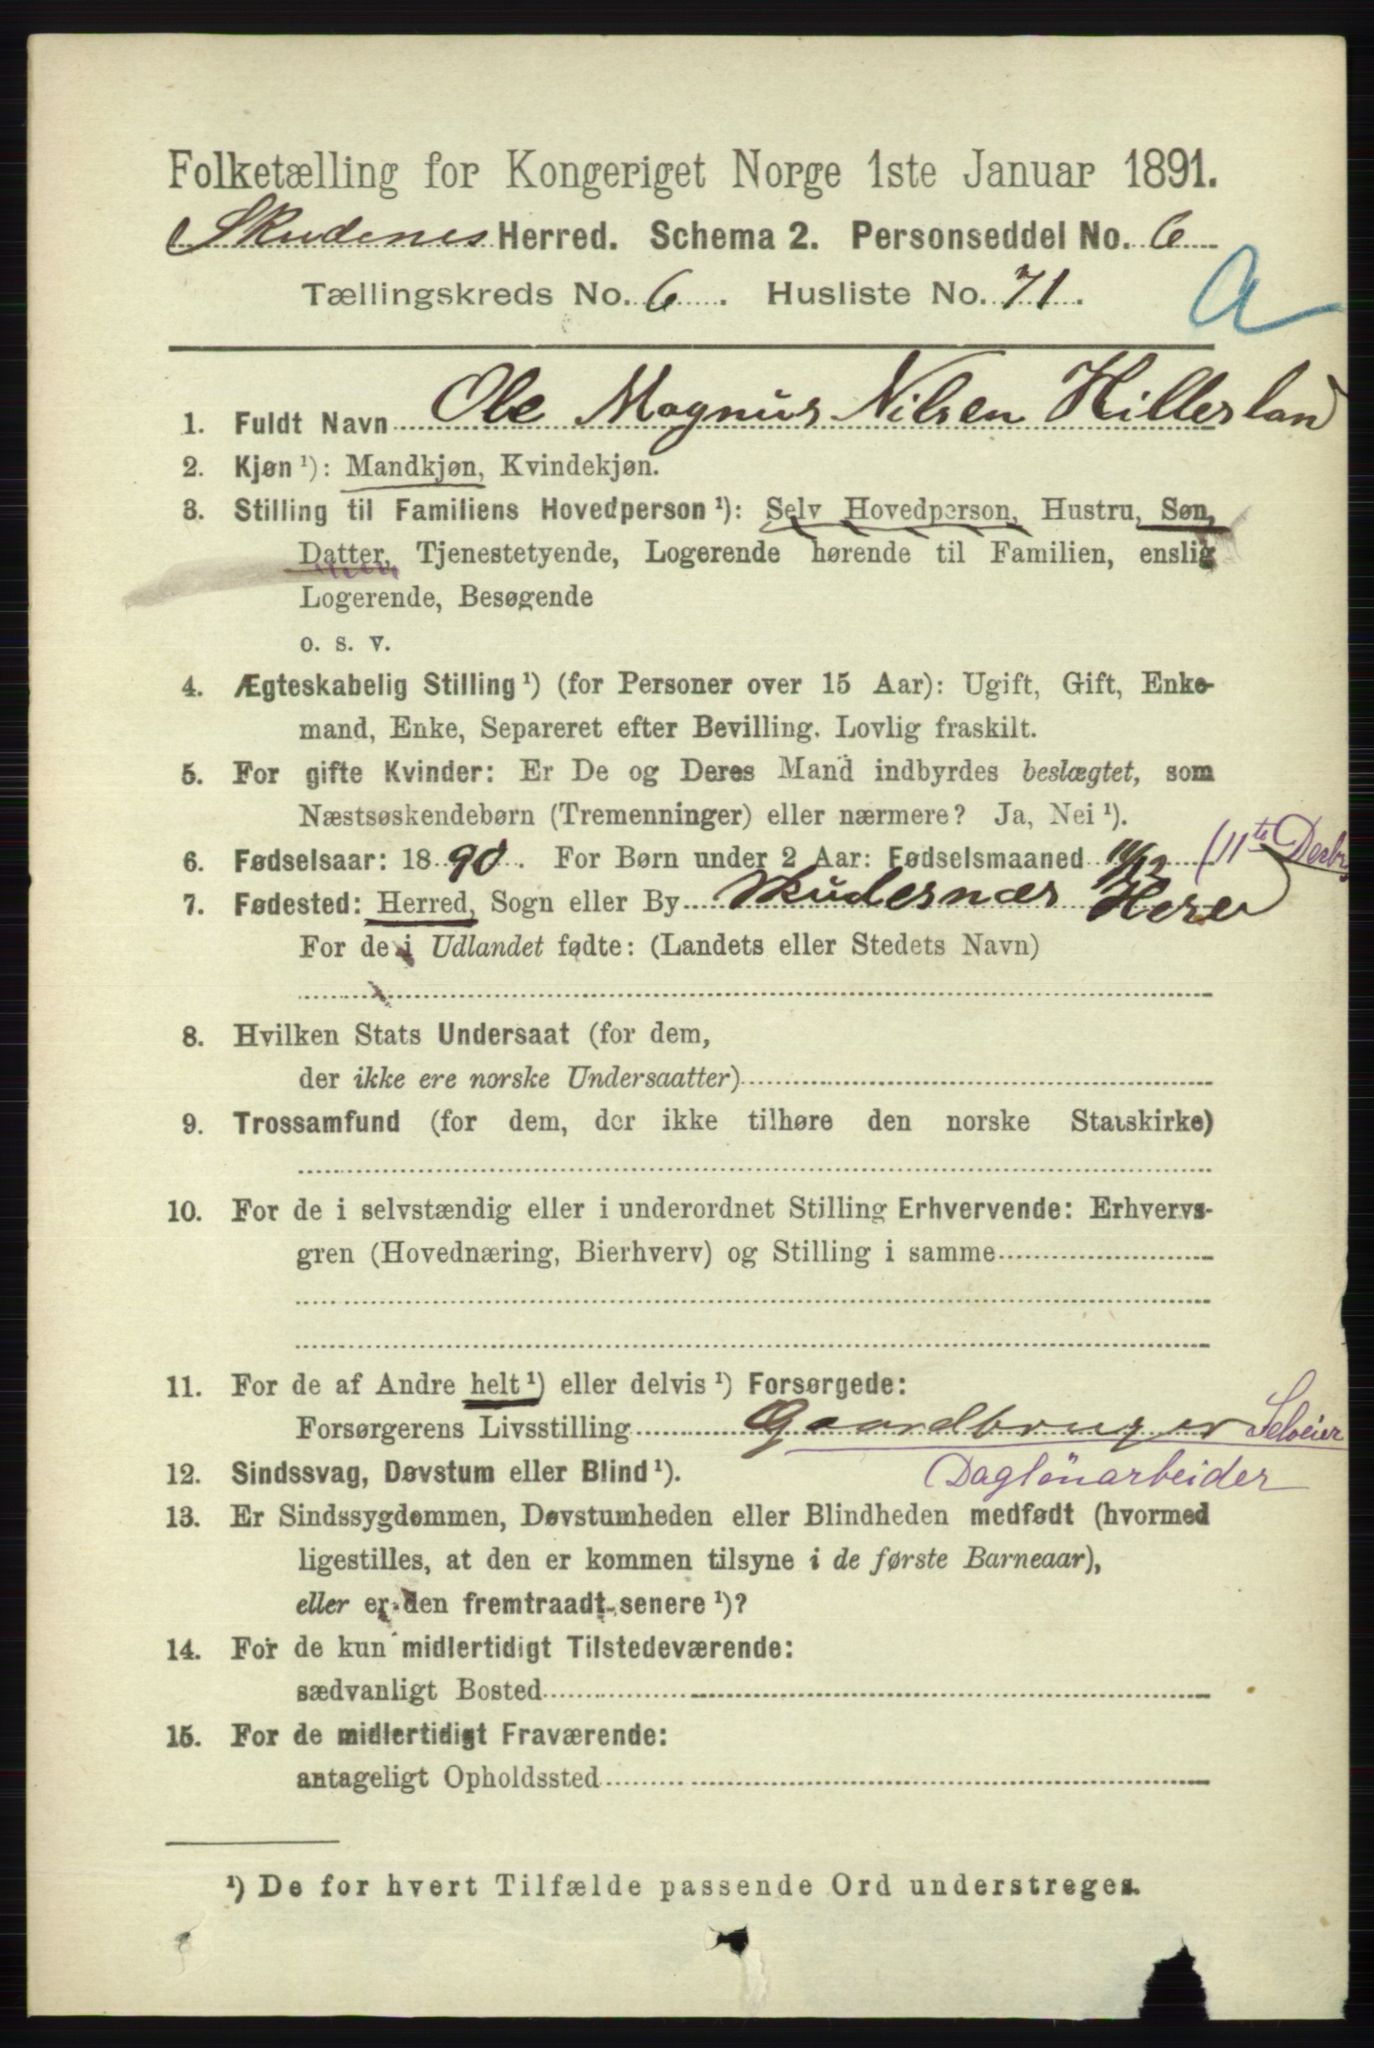 Folketælling for Kongeriget Norge 1ste Januar 1891.
Skudenes Herred. Schema 2. Personseddel No. 6
Tællingskreds No. 6. Husliste No. 71.
a
1. Fuldt Navn Ole Magnus Nilsen Hillesland
2. Kjøn ¹): Mandkjøn, Kvindekjøn.
3. Stilling til Familiens Hovedperson ¹): Selv Hovedperson, Hustru, Søn,
Datter, Tjenestetyende, Logerende hørende til Familien, enslig
Logerende, Besøgende
o. s. v.
4. Ægteskabelig Stilling ¹) (for Personer over 15 Aar): Ugift, Gift, Enke-
mand, Enke, Separeret efter Bevilling. Lovlig fraskilt.
5. For gifte Kvinder: Er De og Deres Mand indbyrdes beslægtet, som
Næstsøskendebørn (Tremenninger) eller nærmere? Ja, Nei ¹).
6. Fødselsaar: 1890. For Børn under 2 Aar: Fødselsmaaned 11/12 (11te Decbr
7. Fødested: Herred, Sogn eller By Skudernæs Here
For de i Udlandet fødte: (Landets eller Stedets Navn)
8. Hvilken Stats Undersaat (for dem,
der ikke ere norske Undersaatter)
9. Trossamfund (for dem, der ikke tilhøre den norske Statskirke)
10. For de i selvstændig eller i underordnet Stilling Erhvervende: Erhvervs-
gren (Hovednæring, Bierhverv) og Stilling i samme
11. For de af Andre helt ¹) eller delvis ¹) Forsørgede:
Forsørgerens Livsstilling Gaardbruger Selveier
12. Sindssvag, Døvstum eller Blind ¹). Daglönarbeider
13. Er Sindssygdommen, Døvstumheden eller Blindheden medfødt (hvormed
ligestilles, at den er kommen tilsyne i de første Barneaar),
eller er den fremtraadt senere ¹)?
14. For de kun midlertidigt Tilstedeværende:
sædvanligt Bosted
15. For de midlertidigt Fraværende:
antageligt Opholdssted
¹) De for hvert Tilfælde passende Ord understreges.